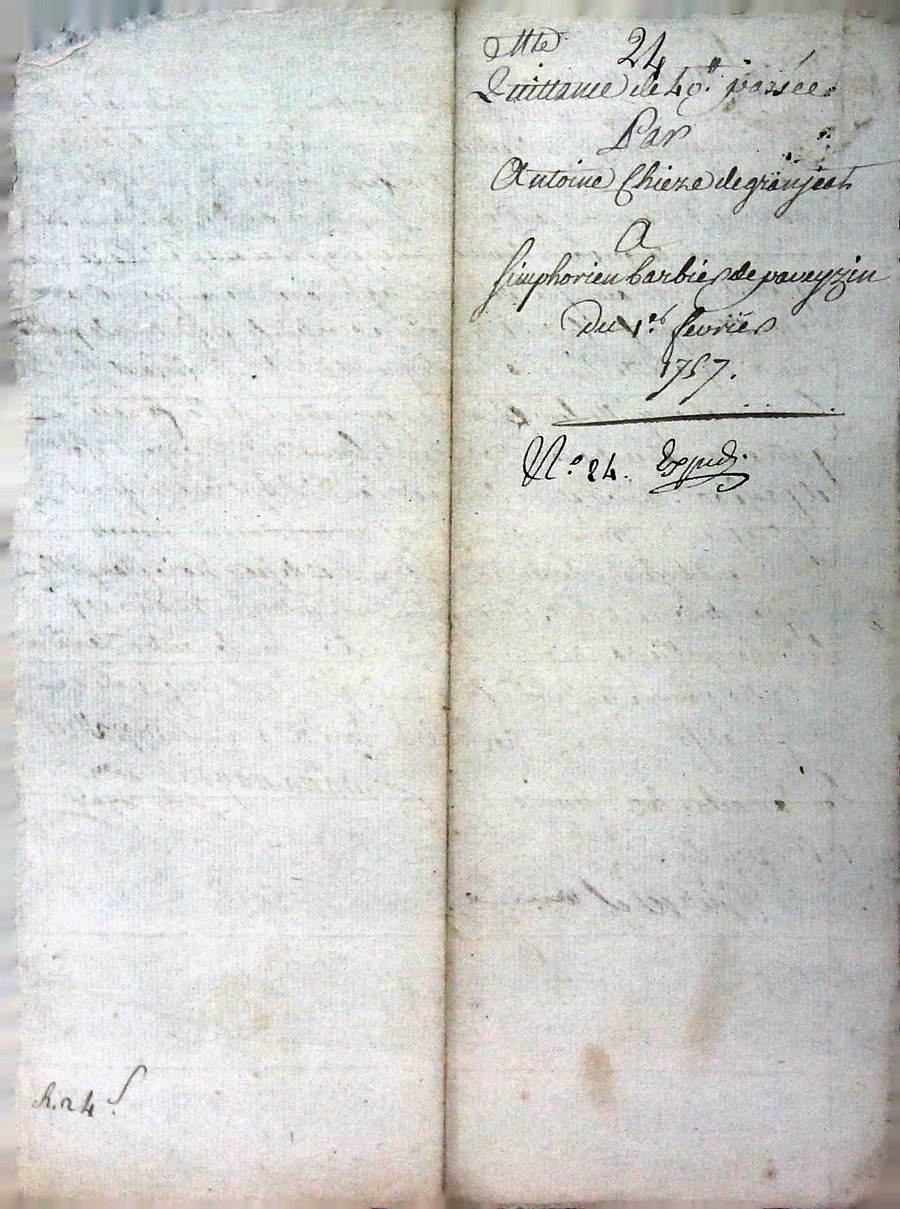 24
Quittance de 40ᵗᵗ passée
Par
Antoine Chieze de granjeat
A
Simphorien barbier de paveyzin
Du 1er fevrier
1757.
N.° 24. Expedi.
R. 24 s